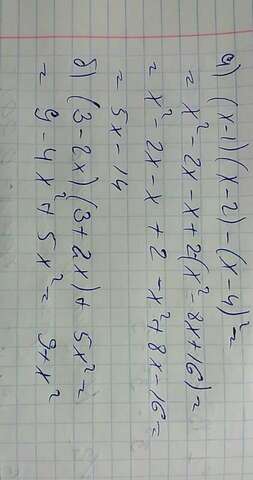 а) (x-1)(x-2)-(x-4)²=
= x²-2x-x+2(x²-8x+16)=
= x²-2x-x+2-x²+8x-16=
= 5x-14
б) (3-2x)(3+2x)+5x²=
= 9-4x²+5x²= 9+x²